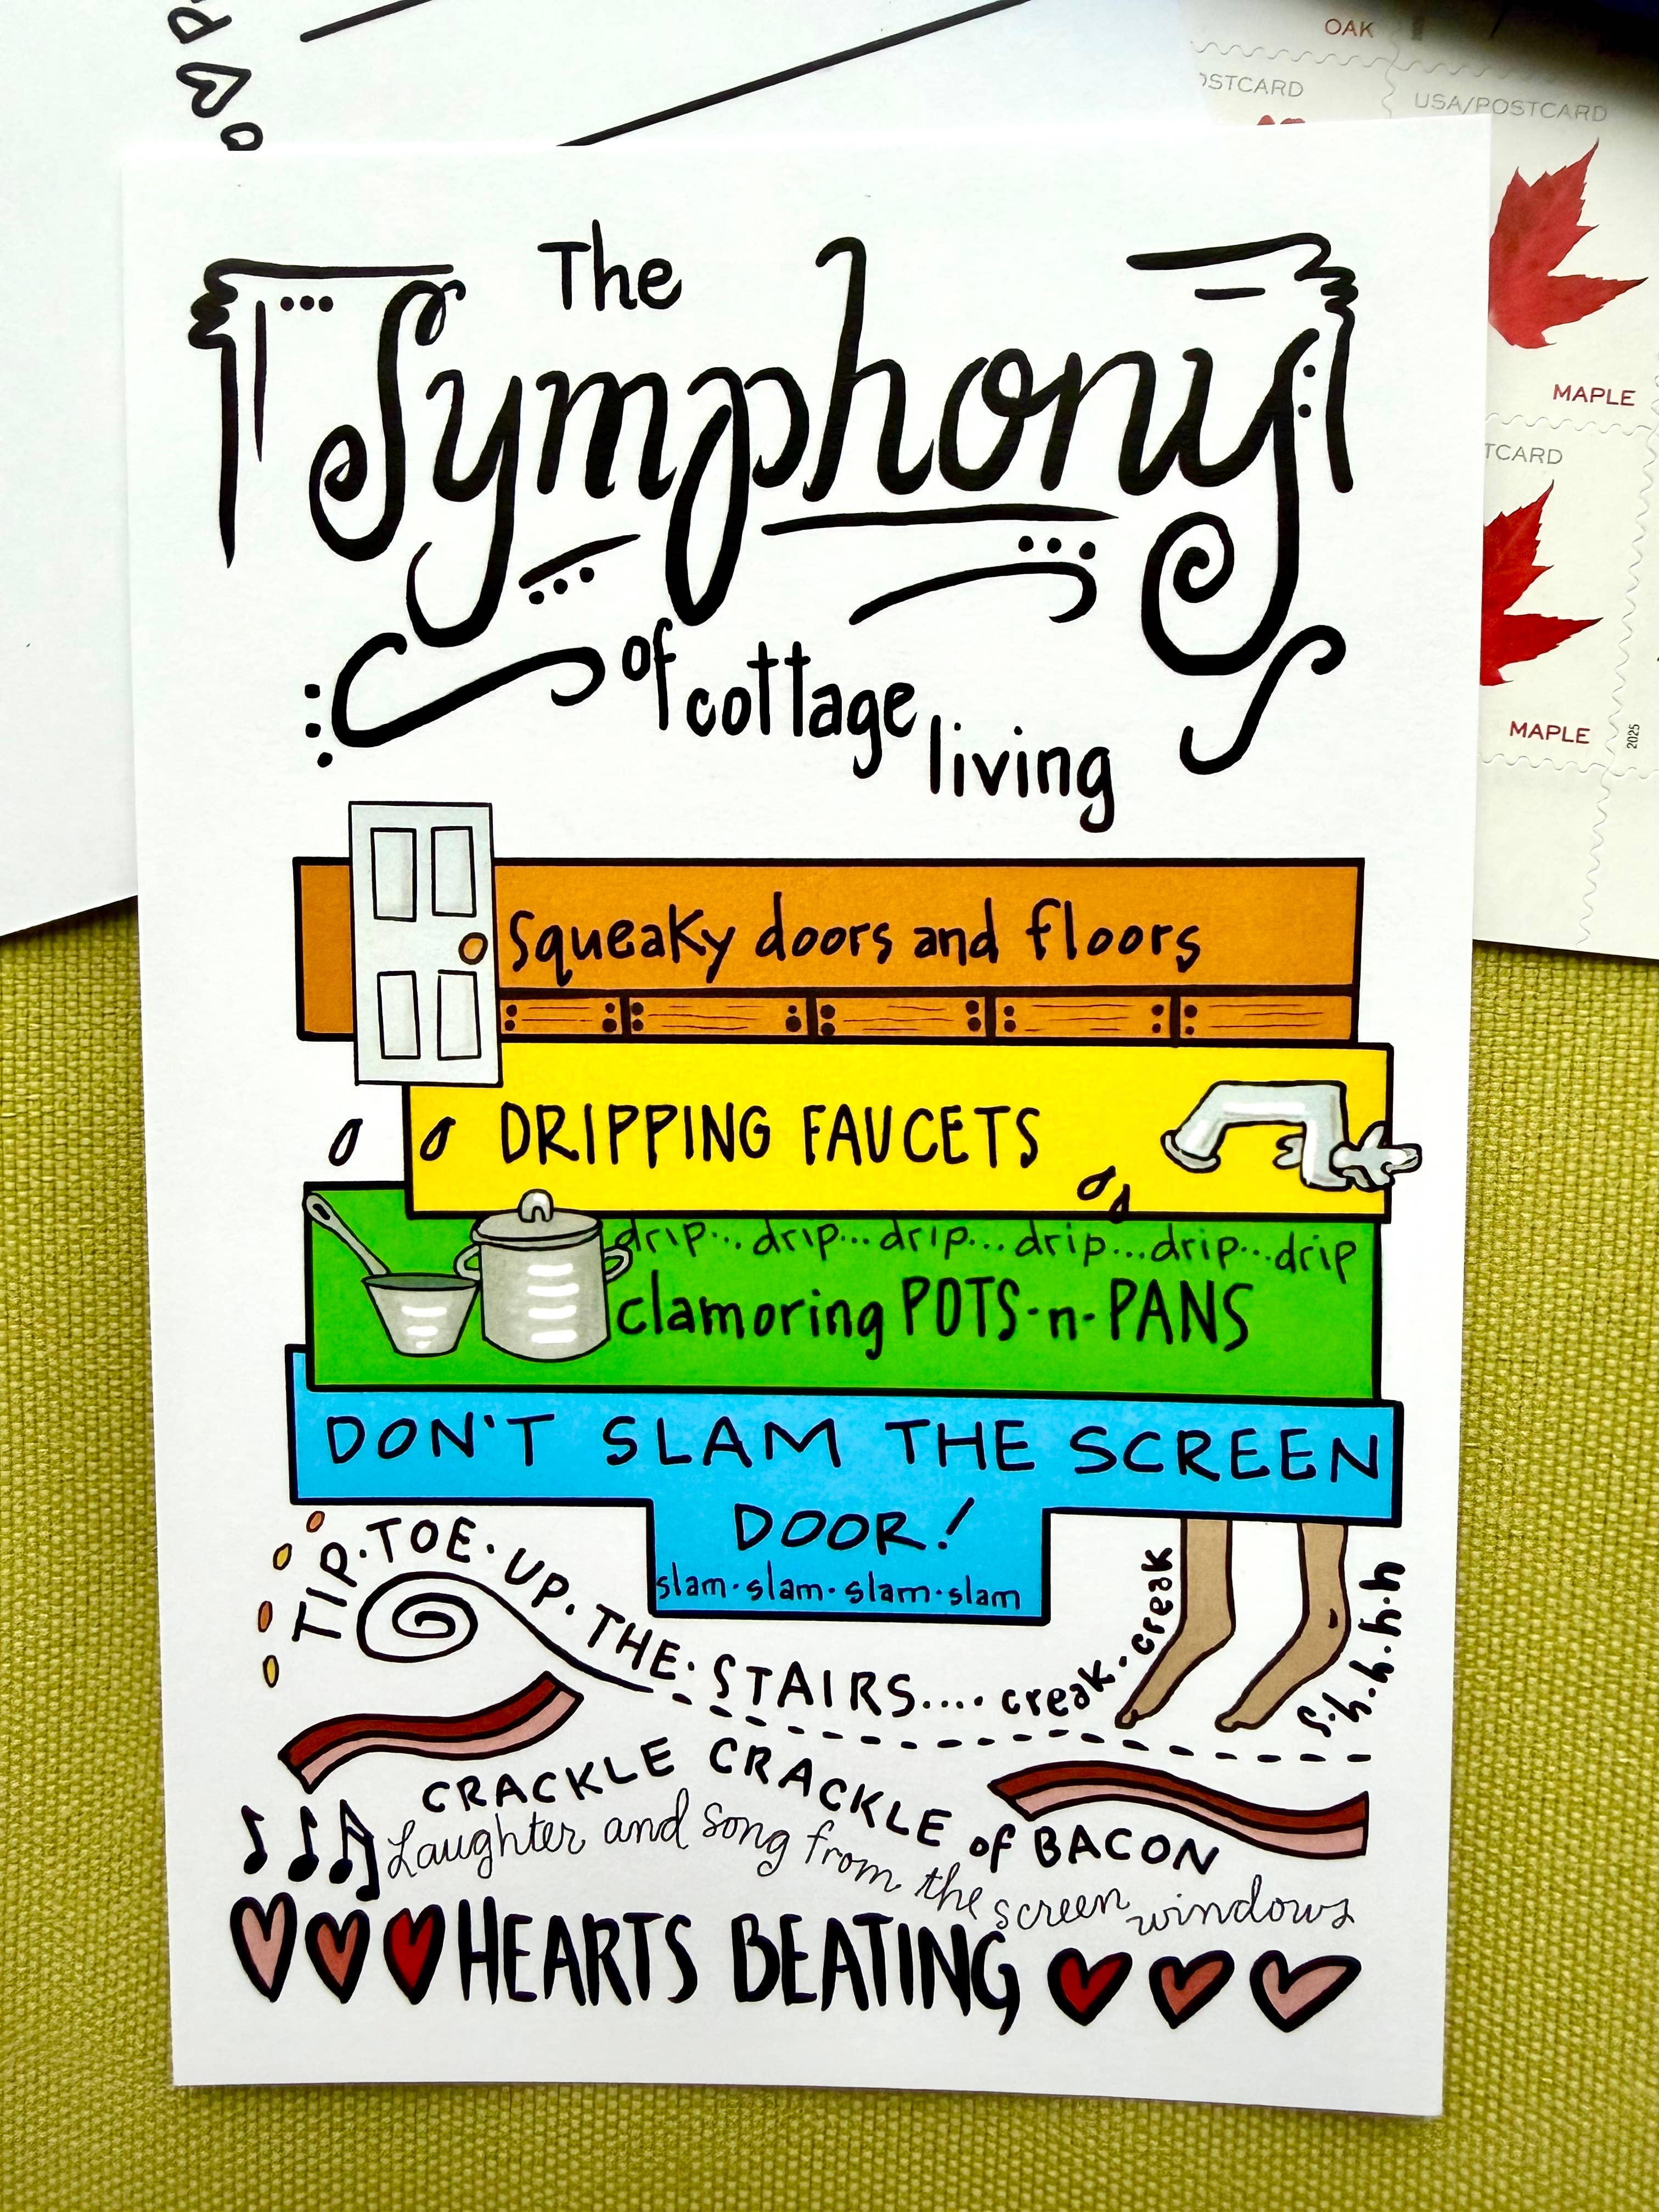 OAK
OSTCARD
USA/POSTCARD
MAPLE
TCARD
MAPLE
2025
The
Symphony
of cottage living
squeaky doors and floors
DRIPPING FAUCETS
drip... drip... drip... drip... drip... drip
clamoring POTS-n-PANS
DON'T SLAM THE SCREEN
DOOR!
slam·slam·slam·slam
TIP·TOE·UP·THE·STAIRS.... creak·creak
s·h·h·h·h·h
CRACKLE CRACKLE of BACON
Laughter and song from the screen windows
HEARTS BEATING